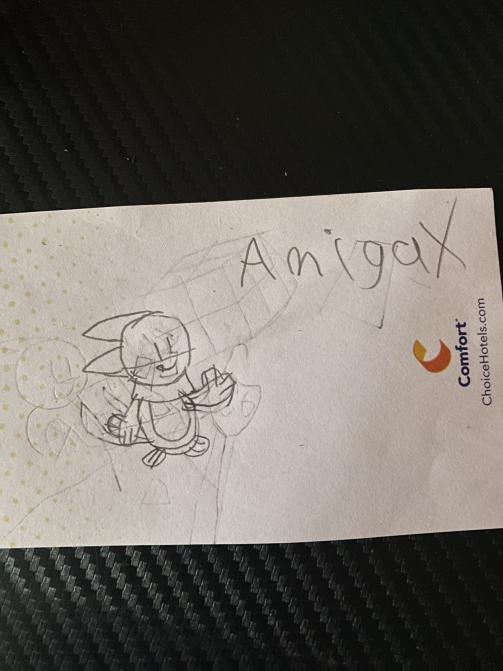 AnigaX
Comfort
ChoiceHotels.com